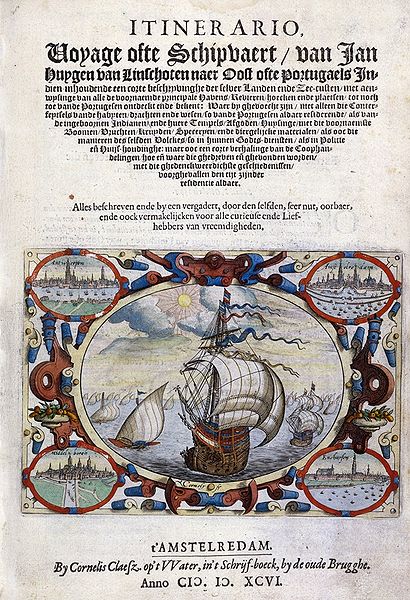 ITINERARIO,
Voyage ofte Schipvaert / van Jan
Huygen van Linschoten naer Oost ofte Portugaels In-
dien inhoudende een corte beschryvinghe der selver Landen ende Zee-custen / met aen-
wysinge van alle de voornaemde principale Havens / Revieren / hoecken ende plaetsen / tot noch
toe vande Portugesen ontdeckt ende bekent: Waer by ghevoecht zijn / niet alleen die Conter-
feytsels vande habyten / drachten ende wesen / so vande Portugesen aldaer residerende / als van-
de ingeboornen Indianen / ende huere Tempels / Afgoden / Huysinge / met die voornaemste
Boomen / Vruchten / Kruyden / Speceryen / ende diergelijcke materialen / als ooc die
manieren des selfden Volckes / so in hunnen Godts-diensten / als in Politie
eñ Huijs-houdinghe: maer ooc een corte verhalinge van de Coophan-
delingen / hoe eñ waer die ghedreven eñ ghevonden worden /
met die ghedenckweerdichste geschiedenissen /
voorghevallen den tijt zijnder
residentie aldaer.
Alles beschreven ende by een vergadert, door den selfden, seer nut, oorbaer,
ende oock vermakelijcken voor alle curieuse ende Lief-
hebbers van vreemdigheden.
Antwerpen
Amstelredam
Middelborch
Enchuysen
t'AMSTELREDAM.
By Cornelis Claesz. op't VVater, in't Schrijf-boeck, by de oude Brugghe.
Anno CIↃ. IↃ. XCVI.